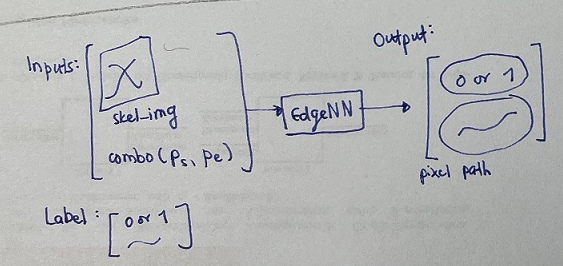 Inputs:
skel-img
combo (Ps, Pe)
EdgeNN
Output:
0 or 1
pixel path
Label :
0 or 1